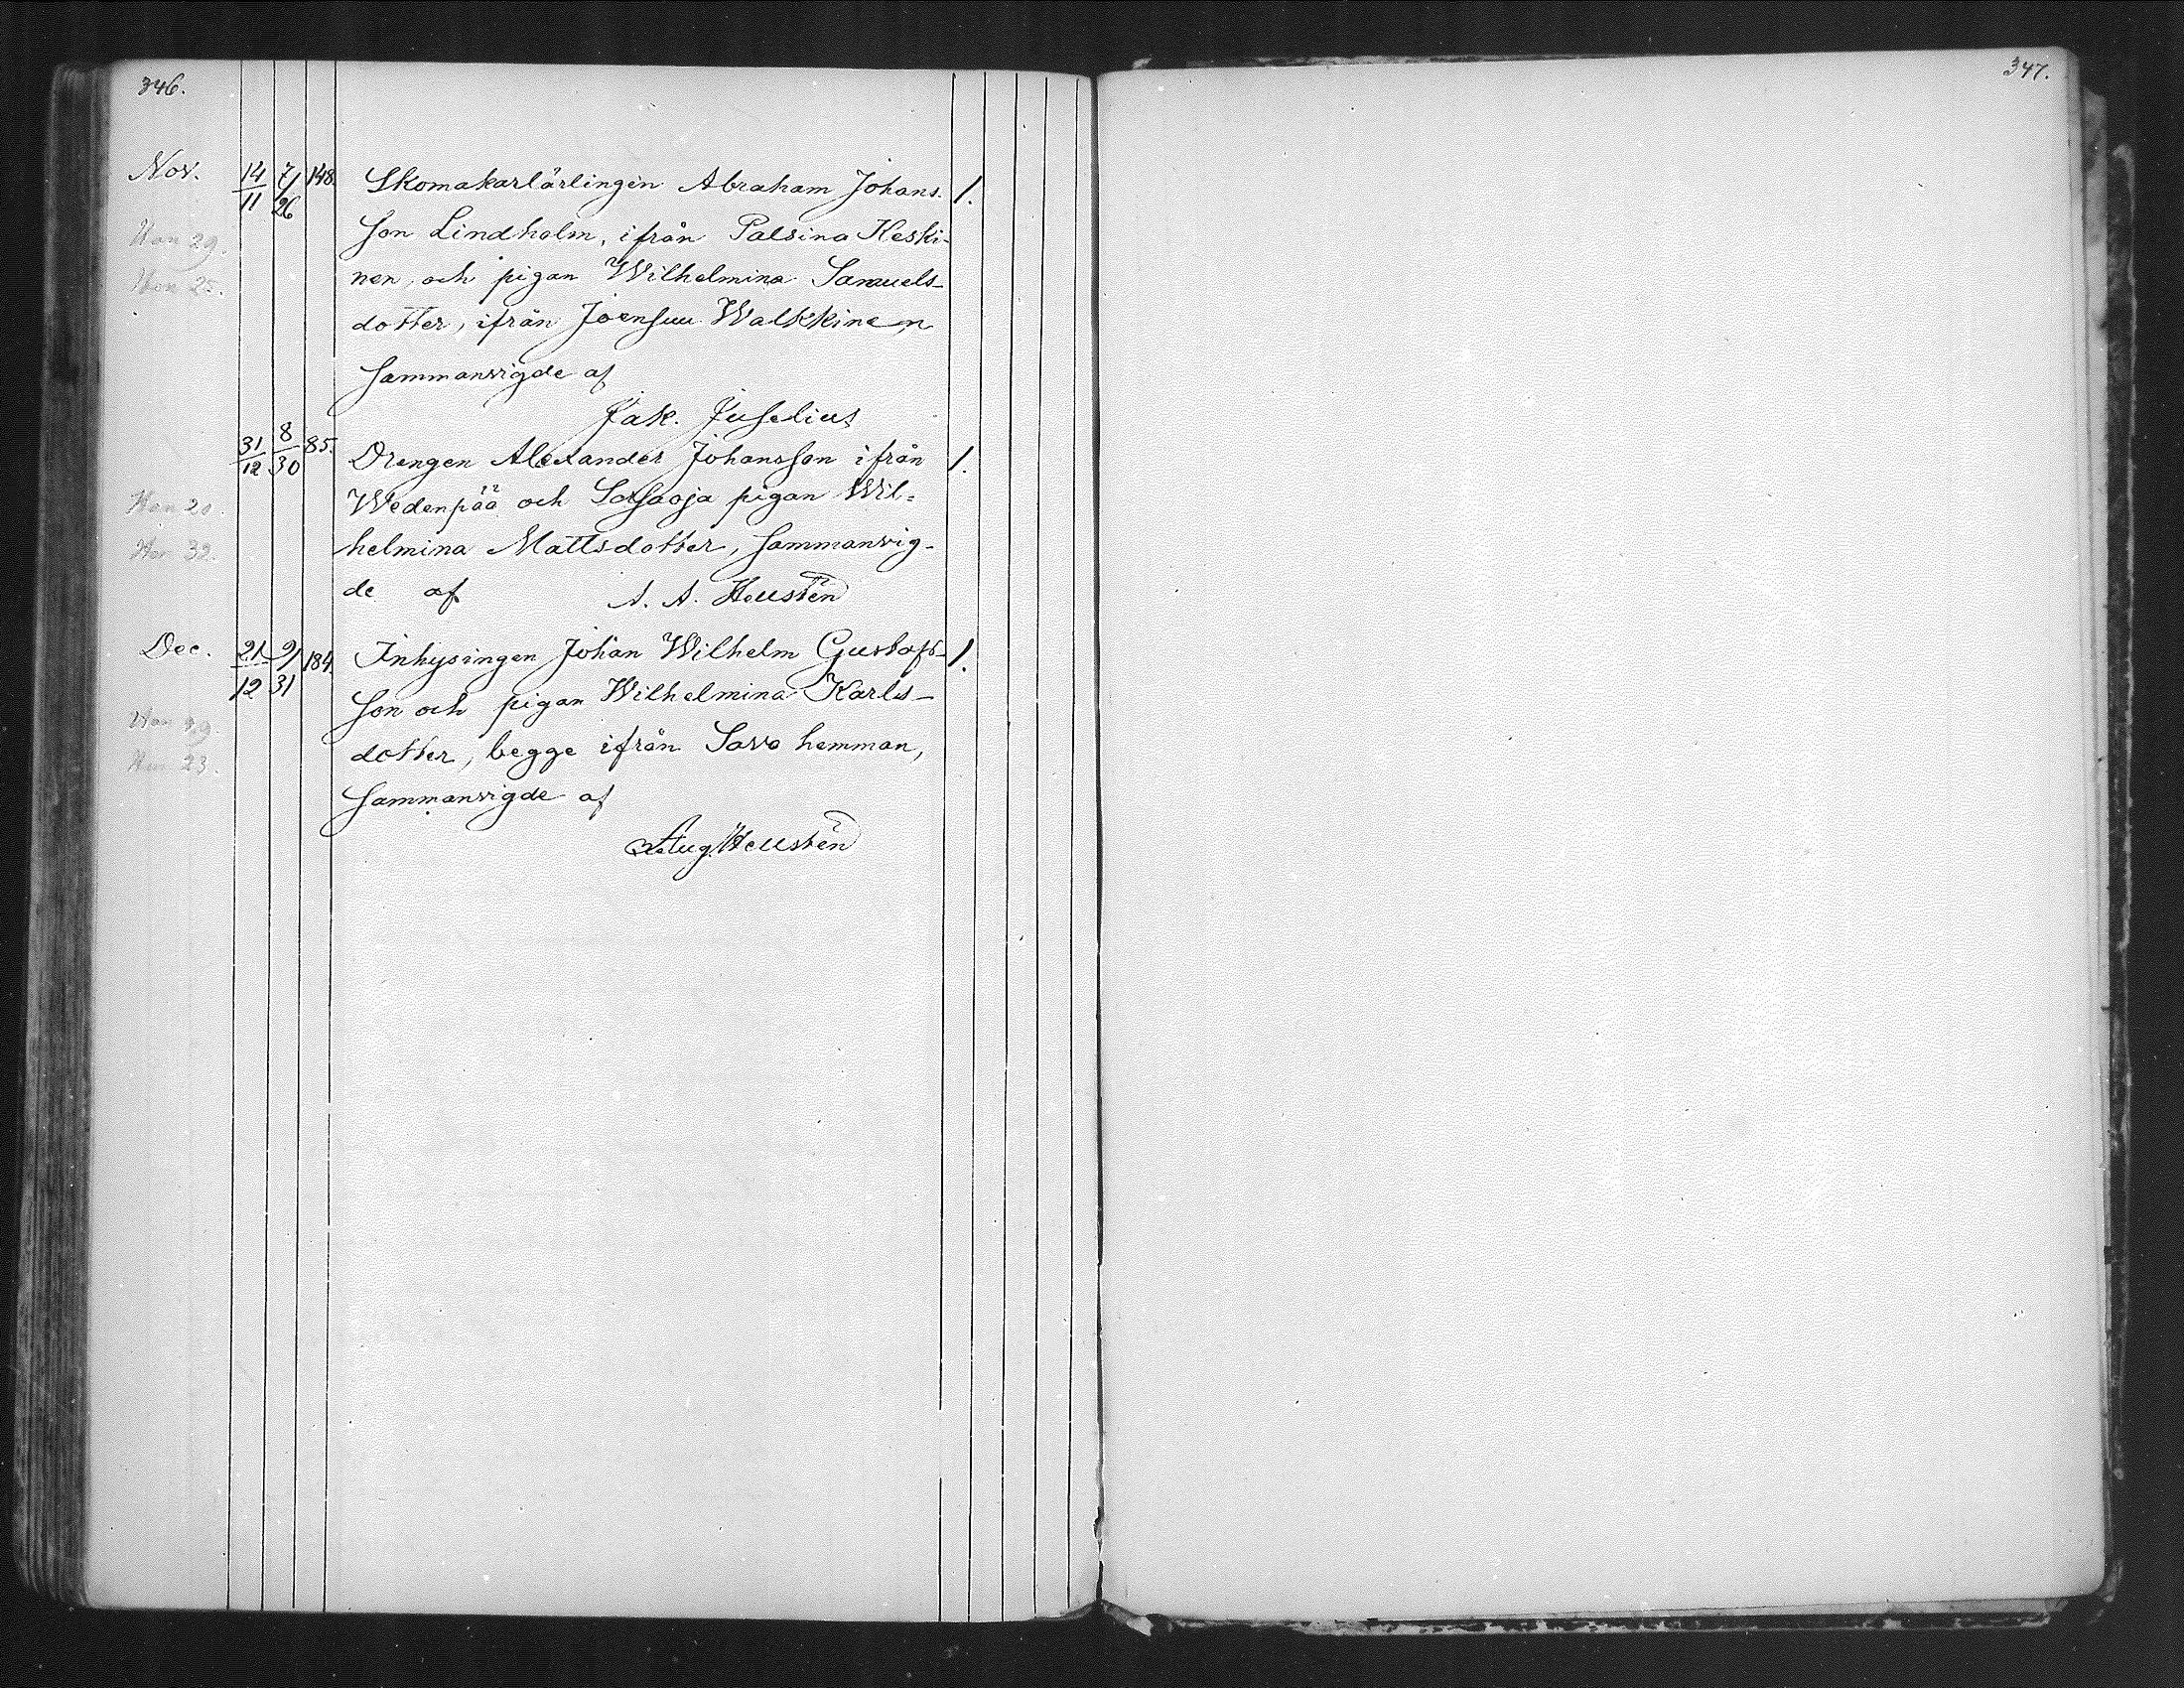 346.
347.
Nov. 14/11 7/26 148. Skomakarlärlingen Abraham Johans- 1.
Han 29. son Lindholm, ifrån Palsina Keski-
Hon 25. nen, och pigan Wilhelmina Samuels-
dotter, ifrån Joensuu Walkkinen,
sammanvigde af
Jak. Juselius
31/12 8/30 85. Drengen Alexander Johansson ifrån 1.
Han 20. Wedenpää och pigan Wil=
Hon 32. helmina Mattsdotter, sammanvig-
de af A. A. Hellstén
Dec. 21/12 9/31 184. Inhysingen Johan Wilhelm Gustafs- 1.
son och pigan Wilhelmina Karls-
Han dotter, begge ifrån Savo hemman,
Hon 23. sammanvigde af
Aug. Hellstén